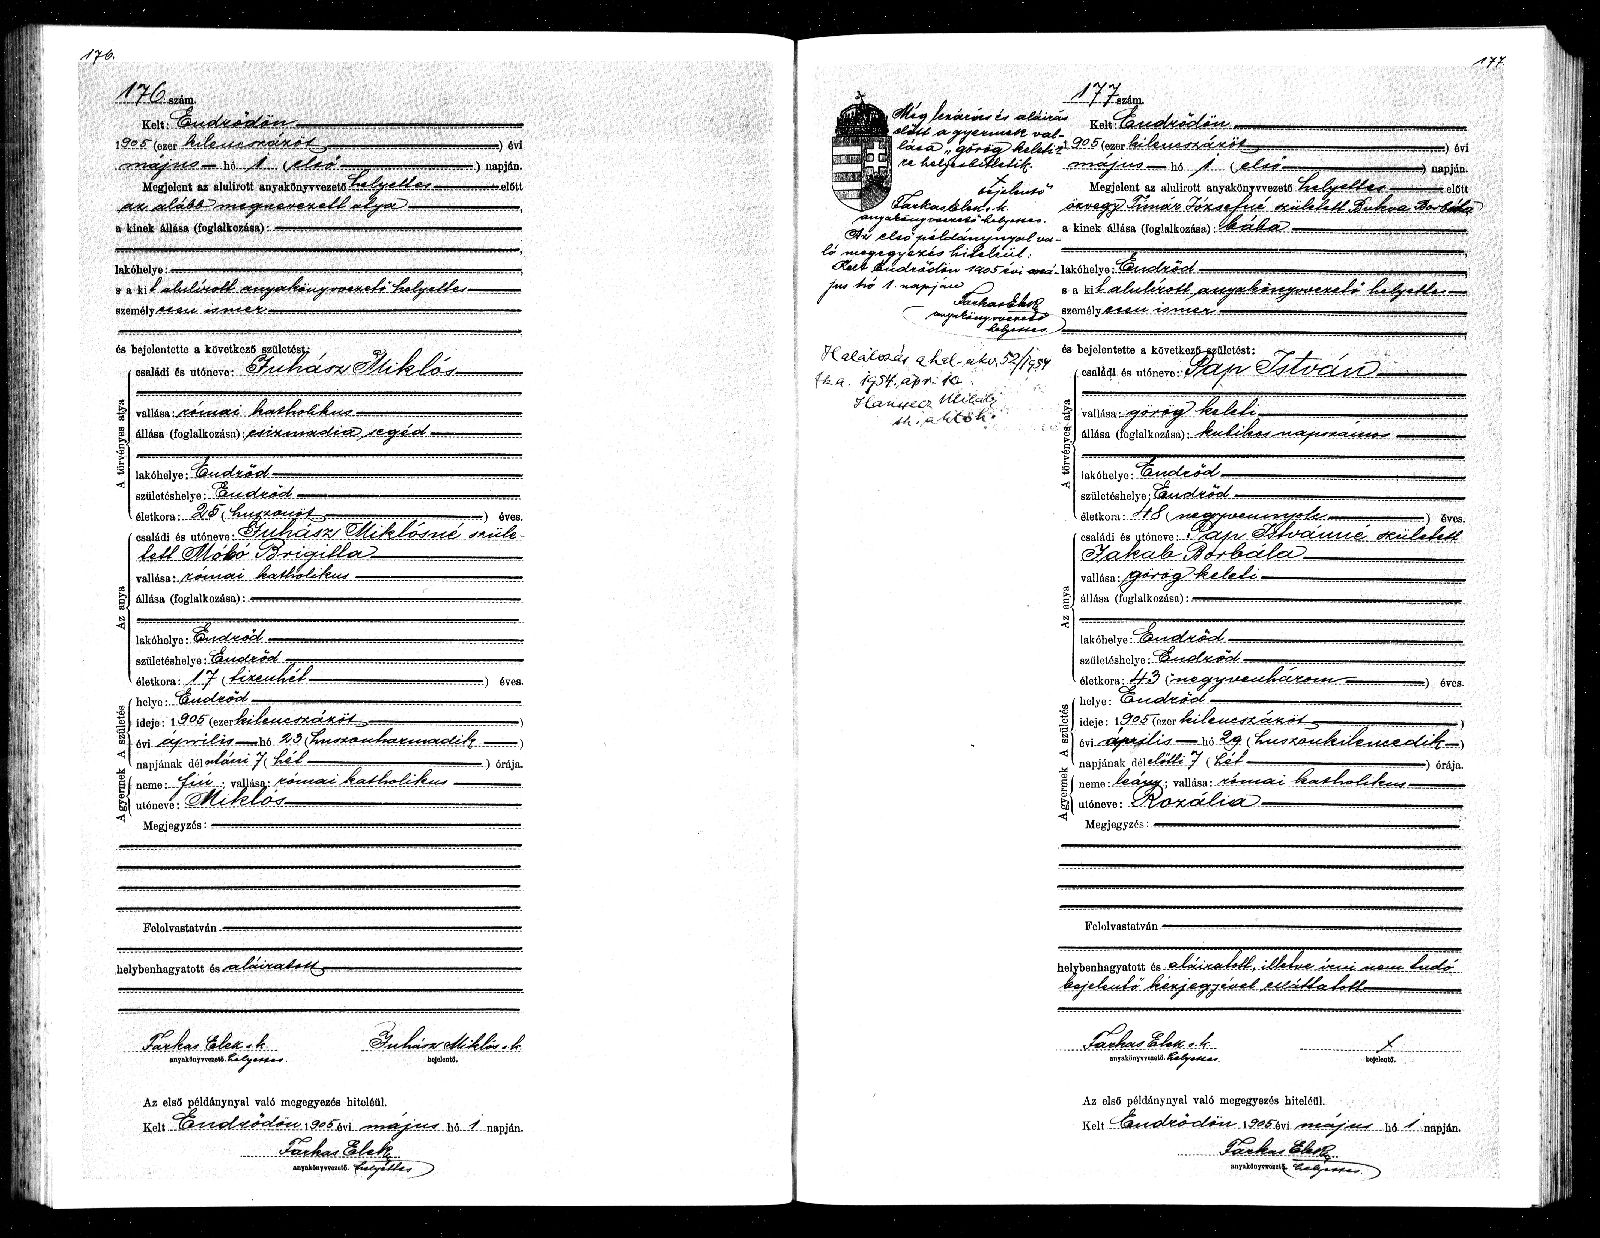 176.
176 szám.
Kelt: Endrődön
1905 (ezer kilenczszázöt) évi
május hó 1 (első) napján.
Megjelent az alulirott anyakönyvvezető helyettes előtt
az alább megnevezett atya
a kinek állása (foglalkozása):
lakóhelye:
s a kit alulirott anyakönyvvezető helyettes
személyesen ismer
és bejelentette a következő születést:
A törvényes atya
családi és utóneve: Juhász Miklós
vallása: római katholikus
állása (foglalkozása): csizmadia segéd
lakóhelye: Endrőd
születéshelye: Endrőd
életkora: 25 (huszonöt) éves.
Az anya
családi és utóneve: Juhász Miklósné szüle-
tett Mókó Brigitta
vallása: római katholikus
állása (foglalkozása):
lakóhelye: Endrőd
születéshelye: Endrőd
életkora: 17 (tizenhét) éves.
A születés
helye: Endrőd
ideje: 1905 (ezer kilenczszázöt)
évi április hó 23 (huszonharmadik)
napjának délutáni 7 (hét) órája.
A gyermek
neme: fiú; vallása: római katholikus
utóneve: Miklós
Megjegyzés:
Felolvastatván
helybenhagyatott és aláiratott
Farkas Elek s.k. Juhász Miklós s.k.
anyakönyvvezető helyettes bejelentő.
Az első példánynyal való megegyezés hiteléül.
Kelt Endrődön 1905 évi május hó 1 napján.
Farkas Elek
anyakönyvvezető helyettes
177.
Meg lezárás és aláirás
előtt a gyermek val-
lása „görög keleti"-
re helyesbittetik.
+
bejelentő
Farkas Elek s.k.
anyakönyvvezető helyettes.
Az első példánynyal va-
ló megegyezés hiteléül.
Kelt Endrődön 1905 évi má-
jus hó 1. napján
Farkas Elek
anyakönyvvezető
helyettes
Halálozás a hal. akv. 52/1954
1954. ápr.
Mihály
177 szám.
Kelt: Endrődön
1905 (ezer kilenczszázöt) évi
május hó 1 (első) napján.
Megjelent az alulirott anyakönyvvezető helyettes előtt
özvegy Timár Józsefné született Buhva Borbála
a kinek állása (foglalkozása): bába
lakóhelye: Endrőd
s a kit alulirott anyakönyvvezető helyettes
személyesen ismer
és bejelentette a következő születést:
A törvényes atya
családi és utóneve: Pap István
vallása: görög keleti
állása (foglalkozása): kubikos napszámos
lakóhelye: Endrőd
születéshelye: Endrőd
életkora: 48 (negyvennyolc) éves.
Az anya
családi és utóneve: Pap Istvánné született
Jakab Borbála
vallása: görög keleti
állása (foglalkozása):
lakóhelye: Endrőd
születéshelye: Endrőd
életkora: 43 (negyvenhárom) éves.
A születés
helye: Endrőd
ideje: 1905 (ezer kilenczszázöt)
évi április hó 29 (huszonkilencedik)
napjának délelőtti 7 (hét) órája.
A gyermek
neme: leány; vallása: római katholikus
utóneve: Rozália
Megjegyzés:
Felolvastatván
helybenhagyatott és aláiratott, illetve irni nem tudó
bejelentő kézjegyével elláttatott
Farkas Elek s.k. +
anyakönyvvezető helyettes bejelentő.
Az első példánynyal való megegyezés hiteléül.
Kelt Endrődön 1905 évi május hó 1 napján.
Farkas Elek
anyakönyvvezető helyettes